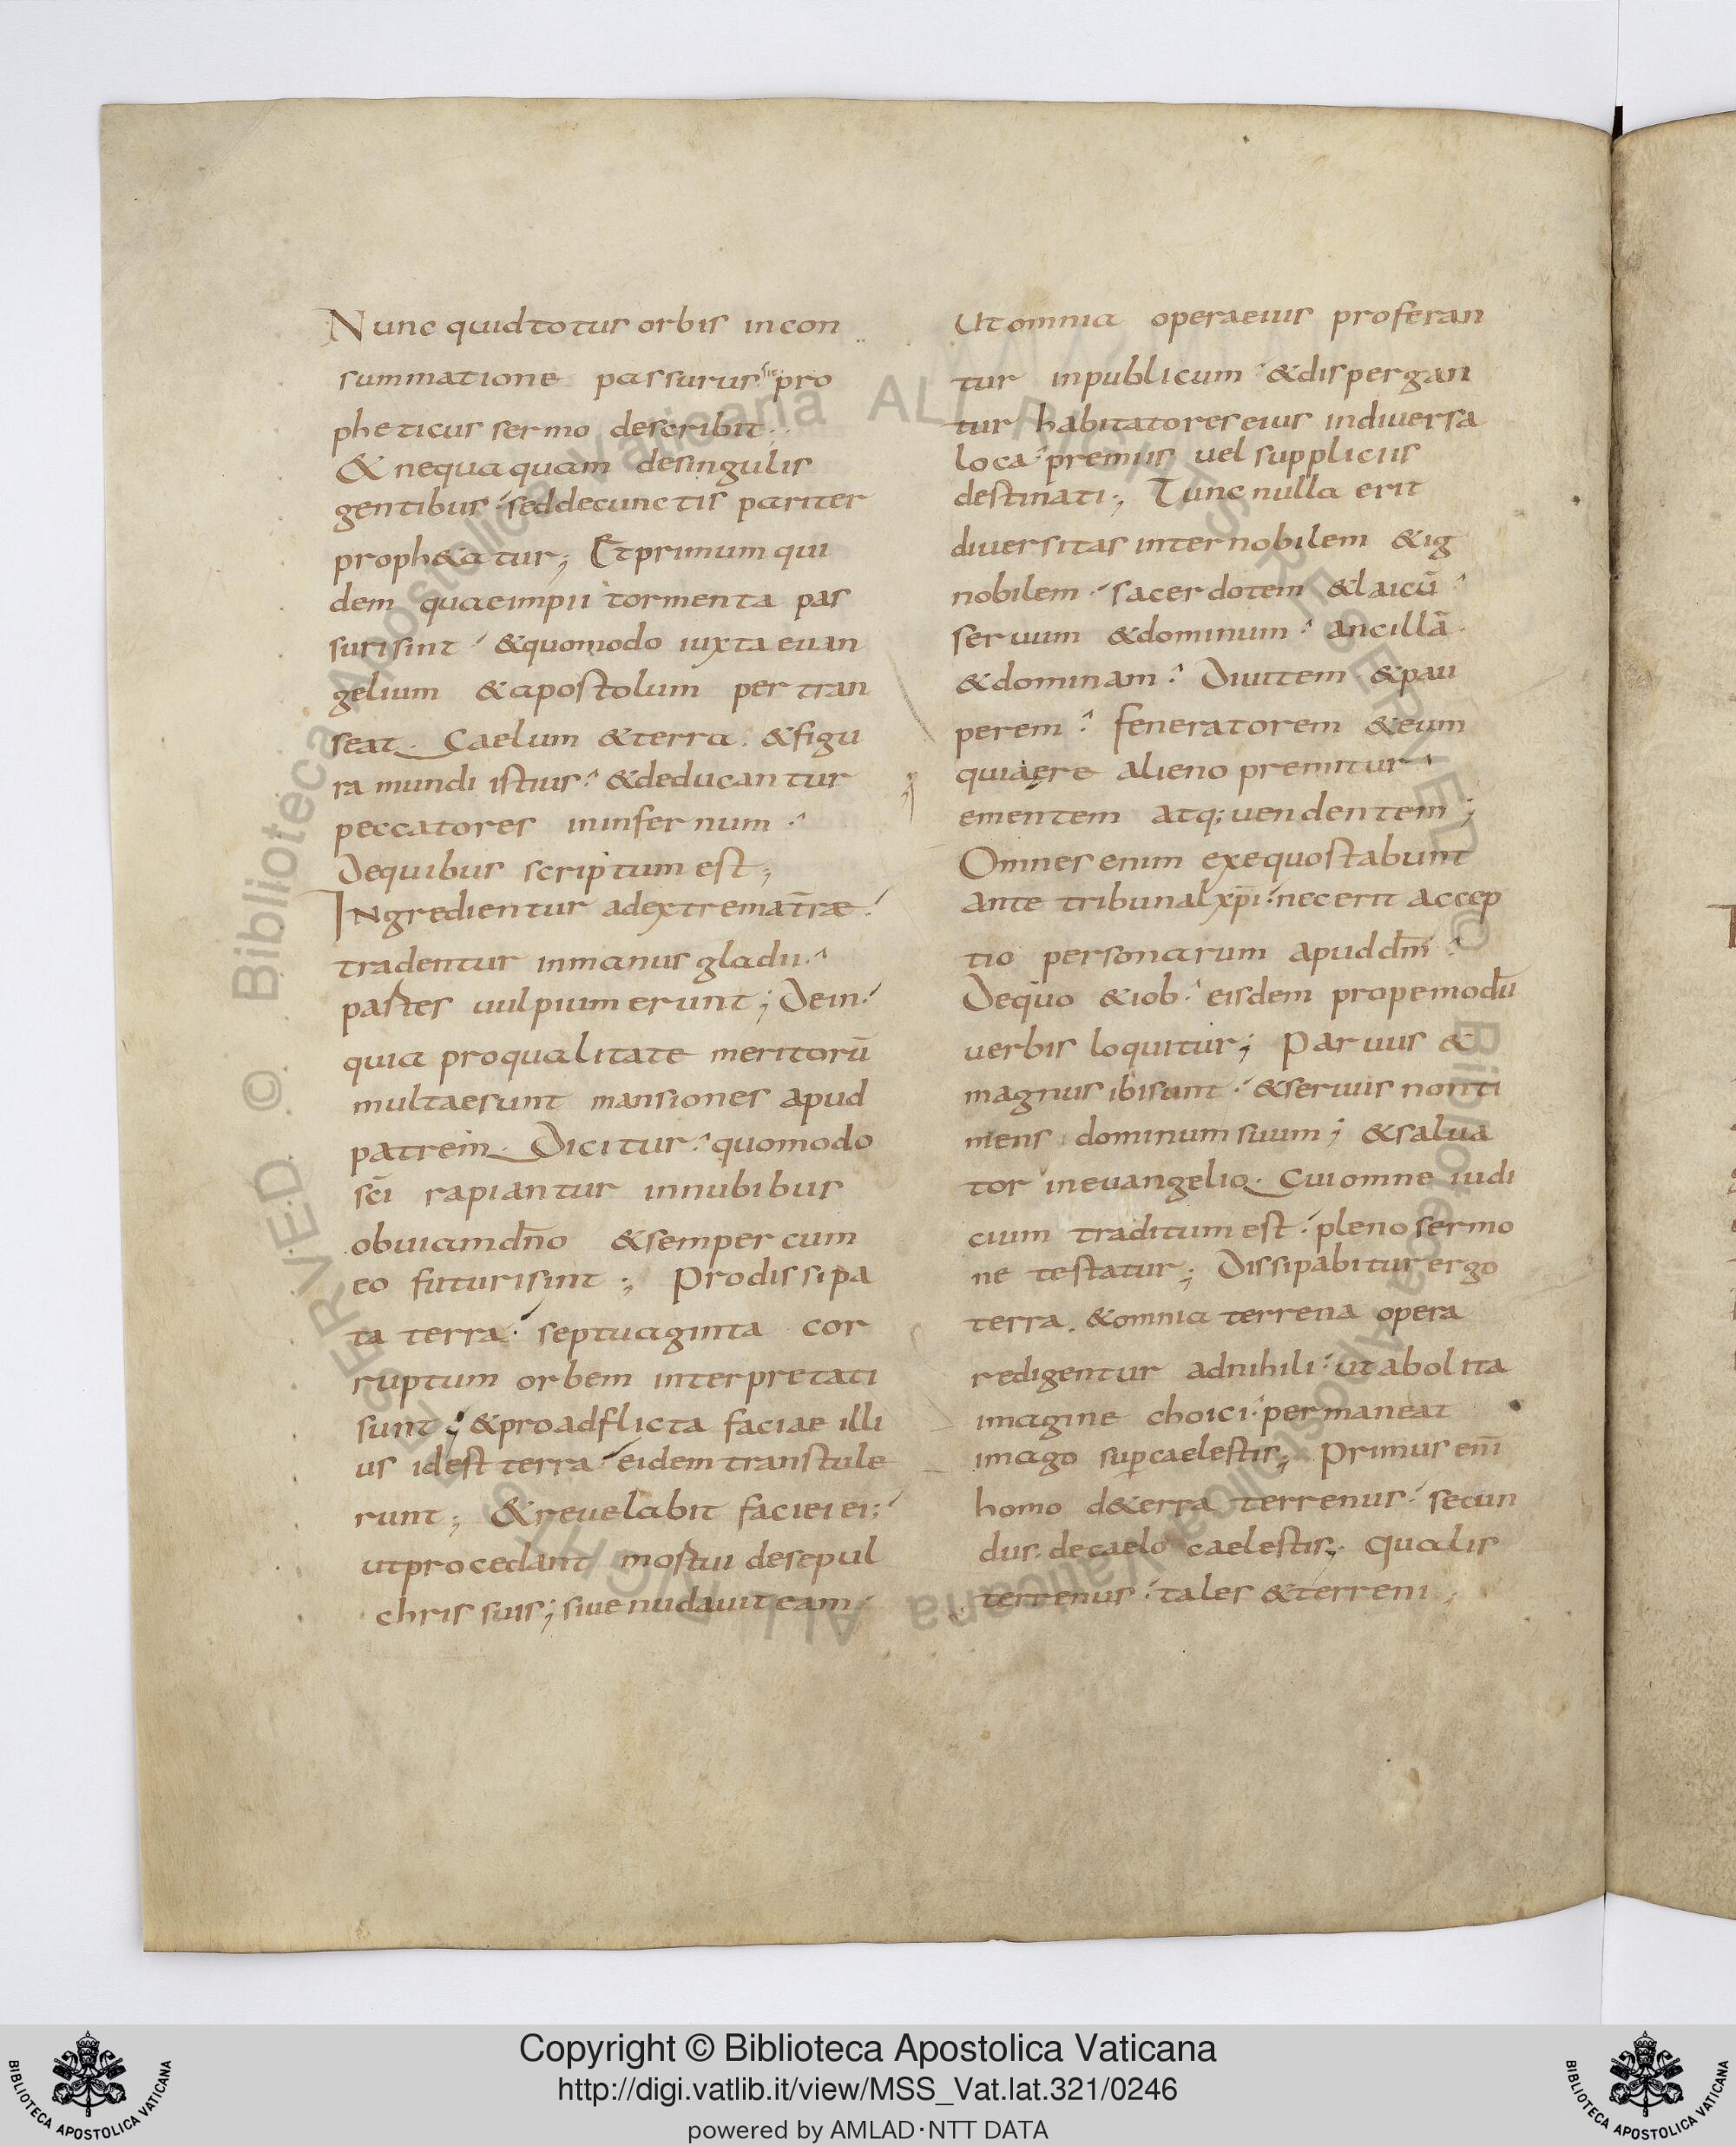 Nunc quid totus orbis in con
summatione passurus sit pro
pheticus sermo describit.
& nequaquam de singulis
gentibus sed de cunctis pariter
proph&atur; Et primum qui
dem quae impii tormenta pas
suri sint & quomodo iuxta euan
gelium & apostolum per tran
seat. Caelum & terra. & figu
ra mundi istius & deducantur
peccatores in infernum
De quibus scriptum est;
INgredientur ad extrema t̄ræ
tradentur in manus gladii
partes uulpium erunt; Dein
quia pro qualitate meritorū
multae sunt mansiones apud
patrem. Dicitur quomodo
sc̄i rapiantur in nubibus
obuiam dn̄o & semper cum
eo futuri sint; Pro dissipa
ta terra septuaginta cor
ruptum orbem interpretati
sunt; & pro adflicta faciae illi
us id est terra eidem transtule
runt; & reuelabit faciei ei;
ut procedant mortui de sepul
chris suis; siue nudauit eam
Ut omnia opera eius proferan
tur in publicum & dispergan
tur habitatores eius in diuersa
loca premiis uel suppliciis
destinati; Tunc nulla erit
diuersitas inter nobilem & ig
nobilem sacerdotem & laicū
seruum & dominum ancillā
& dominam Diuitem & pau
perem feneratorem & eum
qui aere alieno premitur
ementem atq; uendentem;
Omnes enim ex equo stabunt
ante tribunal xp̄i nec erit accep
tio personarum apud dm̄
De quo & iob eisdem propemodū
uerbis loquitur; Paruus &
magnus ibi sunt & seruus non ti
mens dominum suum; & salua
tor in euangelio. Cui omne iudi
cium traditum est pleno sermo
ne testatur; Dissipabitur ergo
terra. & omnia terrena opera
redigentur ad nihili ut abolita
imagine choici permaneat
imago sup̄caelestis; Primus eni̅
homo de&erra terrenus secun
dus de caelo caelestis; Qualis
terrenus tales & terreni;
Copyright © Biblioteca Apostolica Vaticana
http://digi.vatlib.it/view/MSS_Vat.lat.321/0246
powered by AMLAD·NTT DATA
BIBLIOTECA APOSTOLICA VATICANA
BIBLIOTECA APOSTOLICA VATICANA